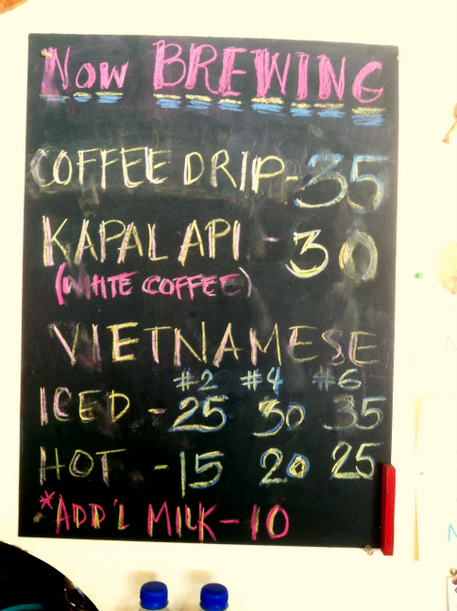 Now BREWING
COFFEE DRIP-35
KAPAL API - 30
(WHITE COFFEE)
VIETNAMESE
#2 #4 #6
ICED - 25 30 35
HOT - 15 20 25
*ADD'L MILK-10